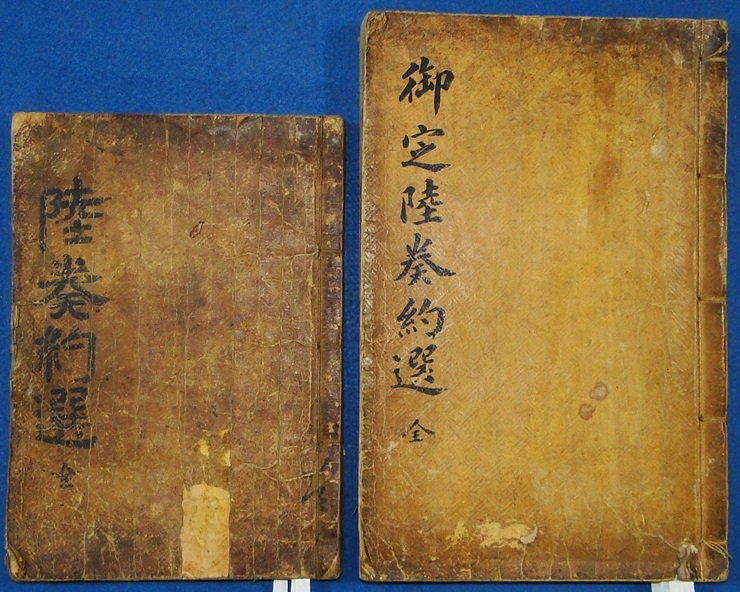 陸奏約選 全
御定陸奏約選 全